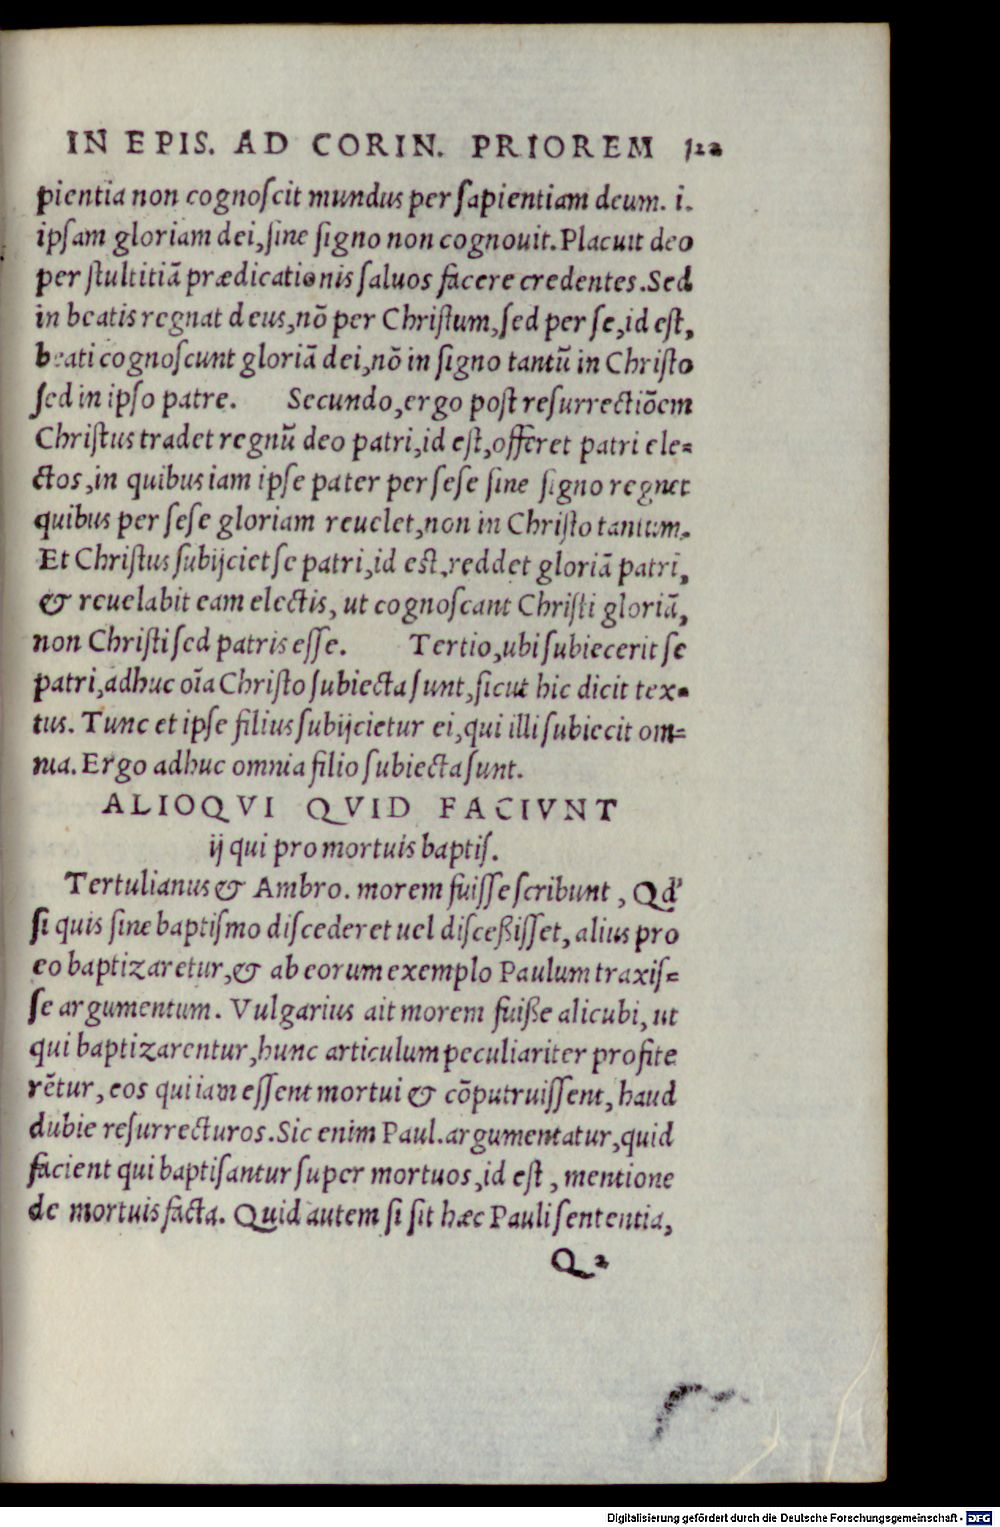 IN EPIS. AD CORIN. PRIOREM 122
pientia non cognoſcit mundus per ſapientiam deum. i.
ipſam gloriam dei, ſine ſigno non cognouit. Placuit deo
per ſtultitiã prædicationis ſaluos facere credentes. Sed
in beatis regnat deus, nõ per Chriſtum, ſed per ſe, id eſt,
beati cognoſcunt gloriã dei, nõ in ſigno tantũ in Chriſto
ſed in ipſo patre. Secundo, ergo poſt reſurrectiõem
Chriſtus tradet regnũ deo patri, id eſt, offeret patri ele=
ctos, in quibus iam ipſe pater per ſeſe ſine ſigno regnet
quibus per ſeſe gloriam reuelet, non in Chriſto tantum.
Et Chriſtus ſubijciet ſe patri, id est, reddet gloriã patri,
& reuelabit eam electis, ut cognoſcant Chriſti gloriã,
non Chriſti ſed patris eſſe. Tertio, ubi ſubiecerit ſe
patri, adhuc oĩa Chriſto ſubiecta ſunt, ſicut hic dicit tex=
tus. Tunc et ipſe filius ſubijcietur ei, qui illi ſubiecit om=
nia. Ergo adhuc omnia filio ſubiecta ſunt.
ALIOQVI QVID FACIVNT
ij qui pro mortuis baptiſ.
Tertulianus & Ambro. morem fuiſſe ſcribunt, Qd'
ſi quis ſine baptiſmo diſcederet uel diſceßiſſet, alius pro
eo baptizaretur, & ab eorum exemplo Paulum traxiſ=
ſe argumentum. Vulgarius ait morem fuiße alicubi, ut
qui baptizarentur, hunc articulum peculiariter profite
rẽtur, eos qui iam eſſent mortui & cõputruiſſent, haud
dubie reſurrecturos. Sic enim Paul. argumentatur, quid
facient qui baptiſantur ſuper mortuos, id eſt, mentione
de mortuis facta. Quid autem ſi ſit hæc Pauli ſententia,
Q 2
Digitalisierung gefördert durch die Deutsche Forschungsgemeinschaft - DFG